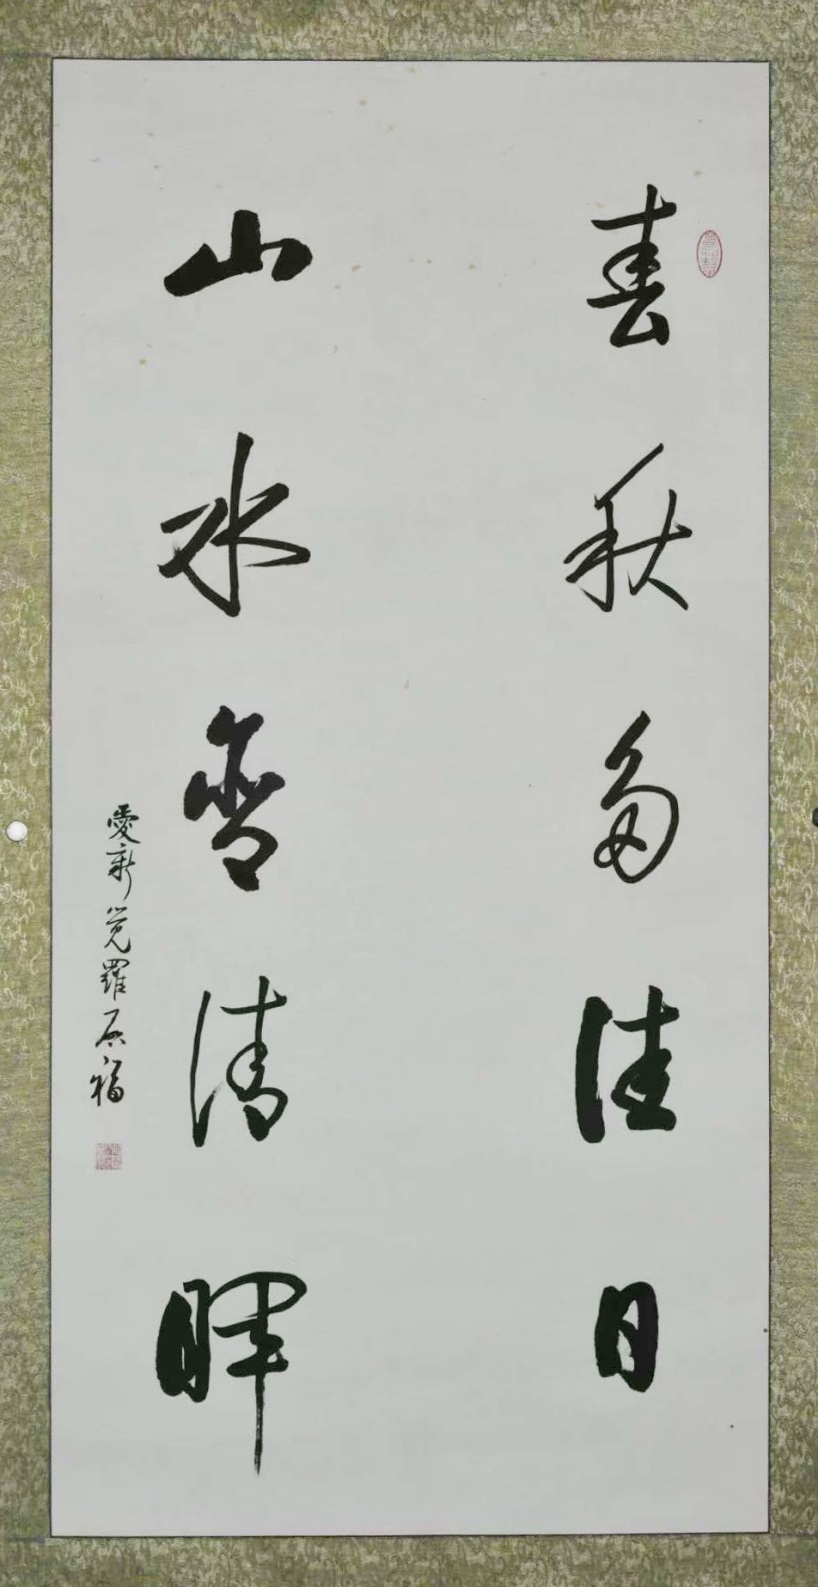 春秋多佳日
山水含清晖
愛新觉羅 福